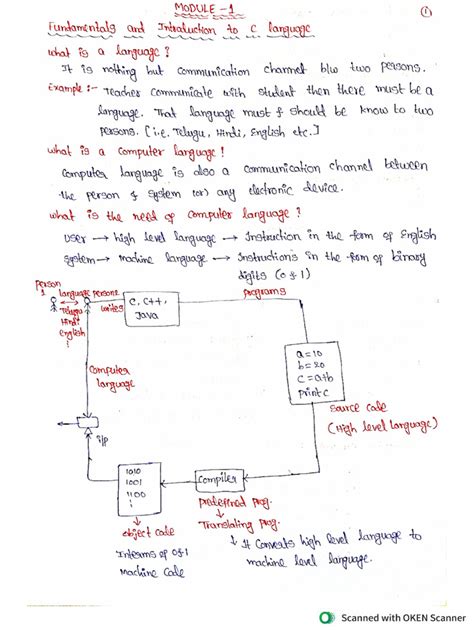 MODULE - 1
①
Fundamentals and Introduction to C language
what is a language?
It is nothing but communication channel b/w two persons.
Example :- Teacher communicate with student then there must be a
language. That language must & should be know to two
persons. [i.e. Telugu, Hindi, English etc.]
what is a computer language?
Computer language is also a communication channel between
the person & system (or) any electronic device.
what is the need of computer language?
User → high level language → Instruction in the form of English
System → Machine language → Instructions in the form of binary
digits (0 & 1)
person
1
language
person2
Telugu
Hindi
English
writes
C, C++,
Java
programs
a=10
b=20
c=a+b
print c
source code
(High level language)
Computer
language
i/p
1010
1001
1100
Compiler
object code
Interms of 0&1
Machine code
predefined prog.
Translating prog.
It converts high level language to
machine level language.
Scanned with OKEN Scanner